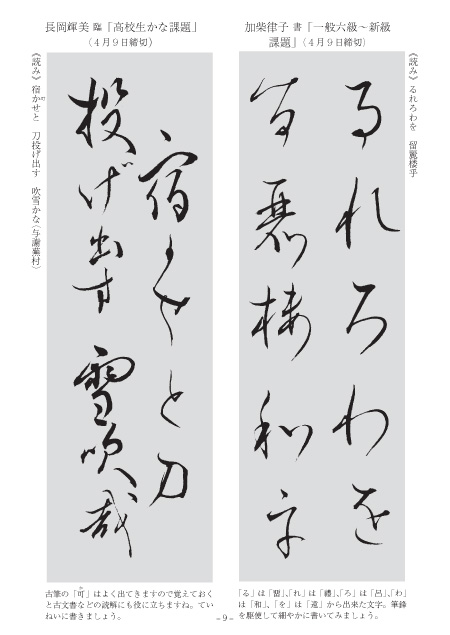 加柴律子 書「一般六級～新級
課題」（4月9日締切）
《読み》るれろわを　留麗楼乎
るれろわを
留麗楼和乎
「る」は「留」、「れ」は「禮」、「ろ」は「呂」、「わ」
は「和」、「を」は「遠」から出来た文字。筆鋒
を駆使して細やかに書いてみましょう。
長岡輝美 臨「高校生かな課題」
（4月9日締切）
《読み》宿かせと　刀投げ出す　吹雪かな（与謝蕪村）
可
宿可せと刀
投げ出す 雪吹哉
古筆の「可」はよく出てきますので覚えておく
か
と古文書などの読解にも役に立ちますね。てい
ねいに書きましょう。
- 9 -